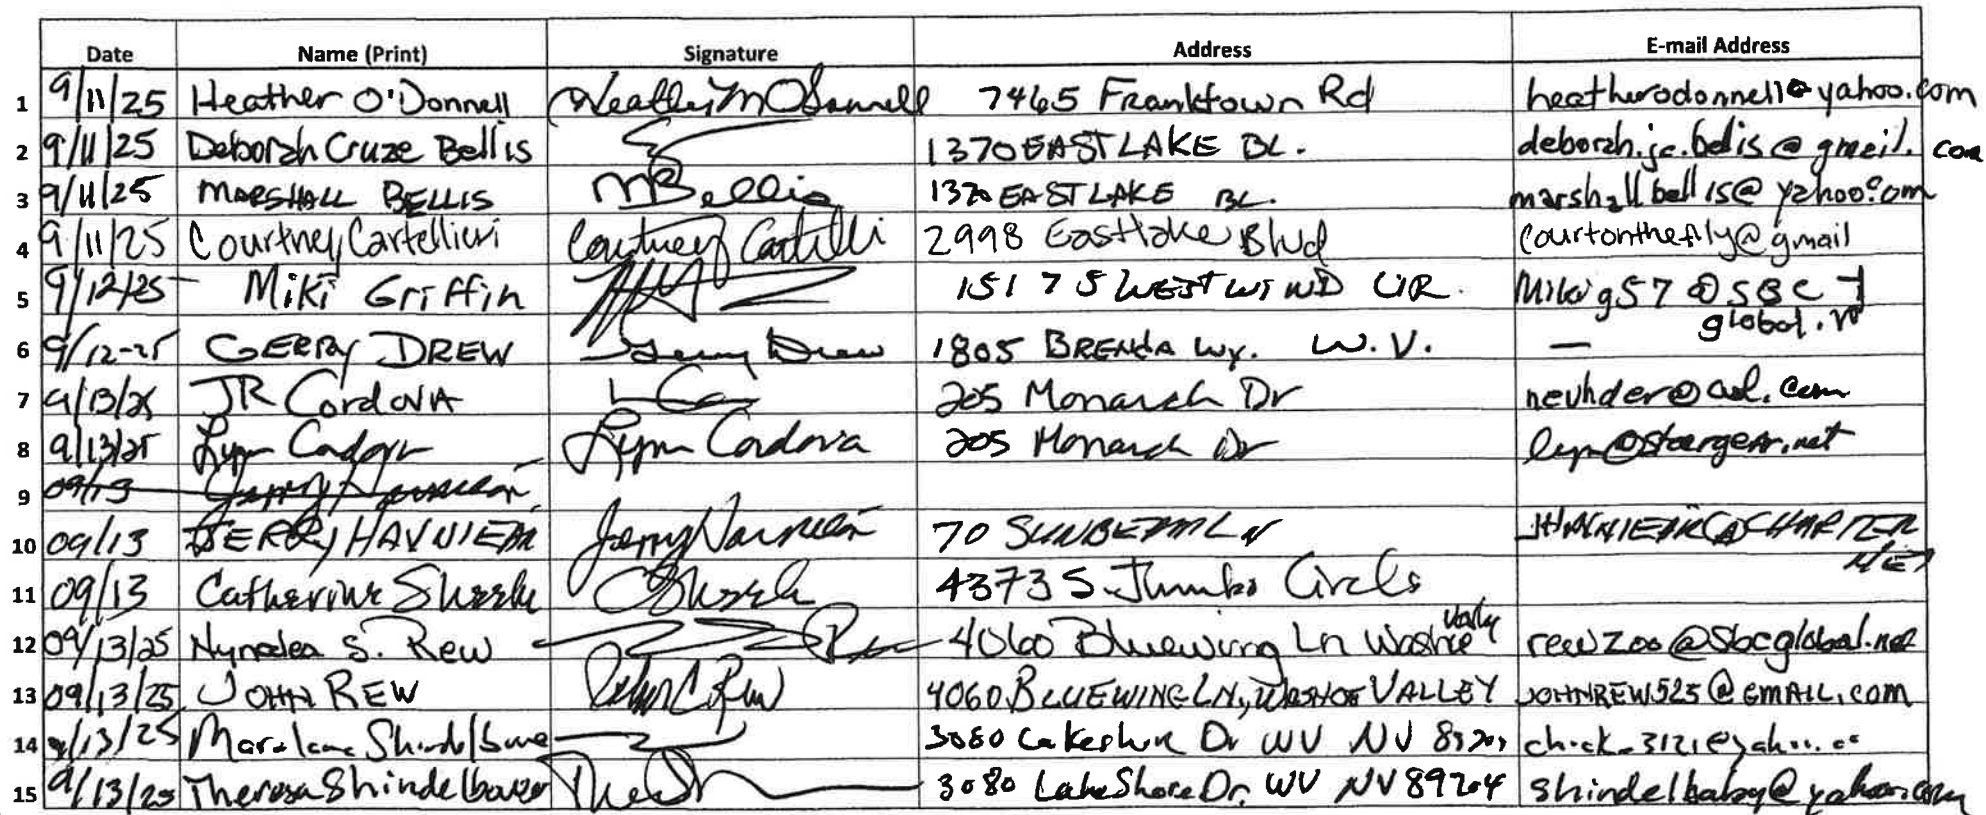 Date Name (Print) Signature Address E-mail Address
1 9/11/25 Heather O'Donnell Heather M O'Donnell 7465 Franktown Rd heatherodonnell@yahoo.com
2 9/11/25 Deborah Cruze Bellis 1370 EASTLAKE BL. deborah.jc.bellis@gmail.com
3 9/11/25 MARSHALL BELLIS MBellis 1370 EASTLAKE BL. marshallbellis@yahoo.com
4 9/11/25 Courtney Cartellieri Courtney 2998 Eastlake Blvd Courtonthefly@gmail
5 9/12/25 Miki Griffin 15175 WESTWIND CIR. Mikig57@SBC
global.
6 9/12-25 GERRY DREW Gerry Drew 1805 BRENDA WY. W.V. —
7 9/13/25 JR CordovA 205 Monarch Dr nevhder@aol.com
8 9/13/25 Lynn Lynn Cordova 205 Monarch Dr
9 09/13
10 09/13 JERRY HAVNIEAR 70 SUNBEAM LN JHAVNIEAR@CHARTER
NET
11 09/13 Catherine 4373 S. Jumbo Circle
12 09/13/25 S. Rew 4060 Bluewing Ln Washoe Vally rewzoo@sbcglobal.net
13 09/13/25 JOHN REW John C Rew 4060 BLUEWING LN, WASHOE VALLEY JOHNREW525@GMAIL.COM
14 9/13/25 3080 Lakeshore Dr WV NV
15 9/13/25 Theresa Shindelbower 3080 LakeShore Dr. WV NV 89704 shindelbaby@yahoo.com